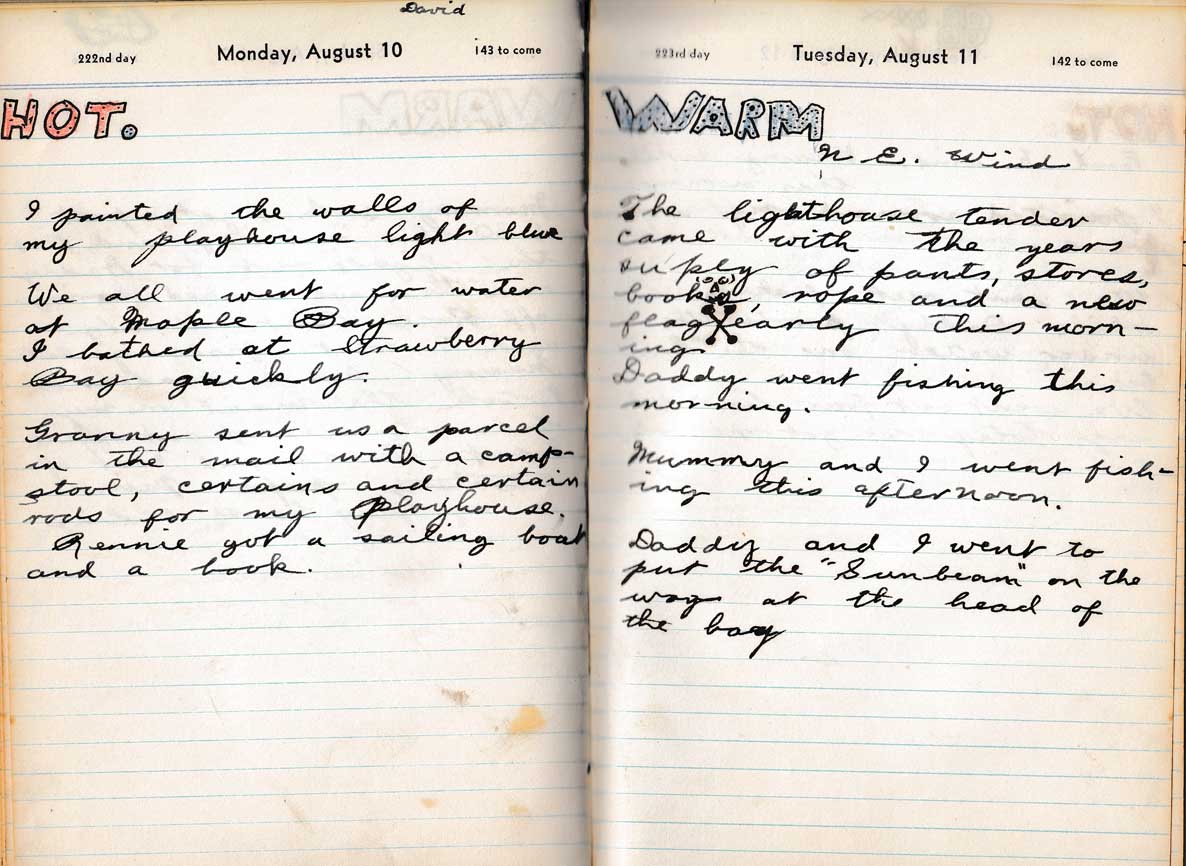 David
222nd day Monday, August 10 143 to come
HOT.
I painted the walls of
my playhouse light blue
We all went for water
at Maple Bay.
I bathed at Strawberry
Bay quickly.
Granny sent us a parcel
in the mail with a camp-
stool, certains and certain
rods for my Playhouse.
Rennie got a sailing boat
and a book.
223rd day Tuesday, August 11 142 to come
WARM
N E. Wind
The lighthouse tender
came with the years
suply of pants, stores,
books, rope and a new
flag early this morn-
ing
Daddy went fishing this
morning.
Mummy and I went fish-
ing this afternoon.
Daddy and I went to
put the "Sunbeam" on the
way at the head of
the bay